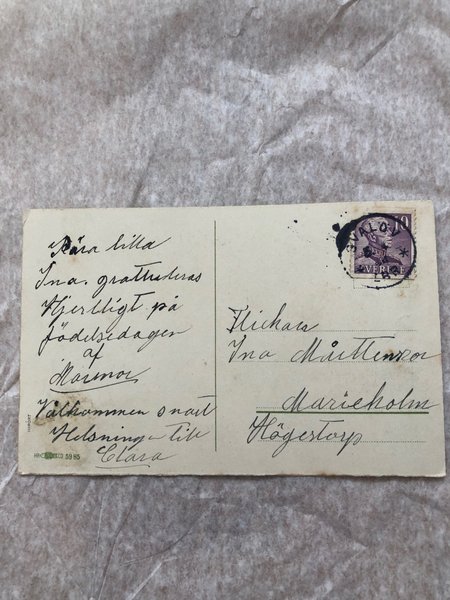 Kära lilla
Ina. gratuleras
Hjertligt på
födelsedagen
af
Mormor
Välkommen snart
Helsning till
Clara
IMPORT
5985
SVALÖV
10
SVERIGE
Flickan
Ina Mårttenzon
Marieholm
Högestorp